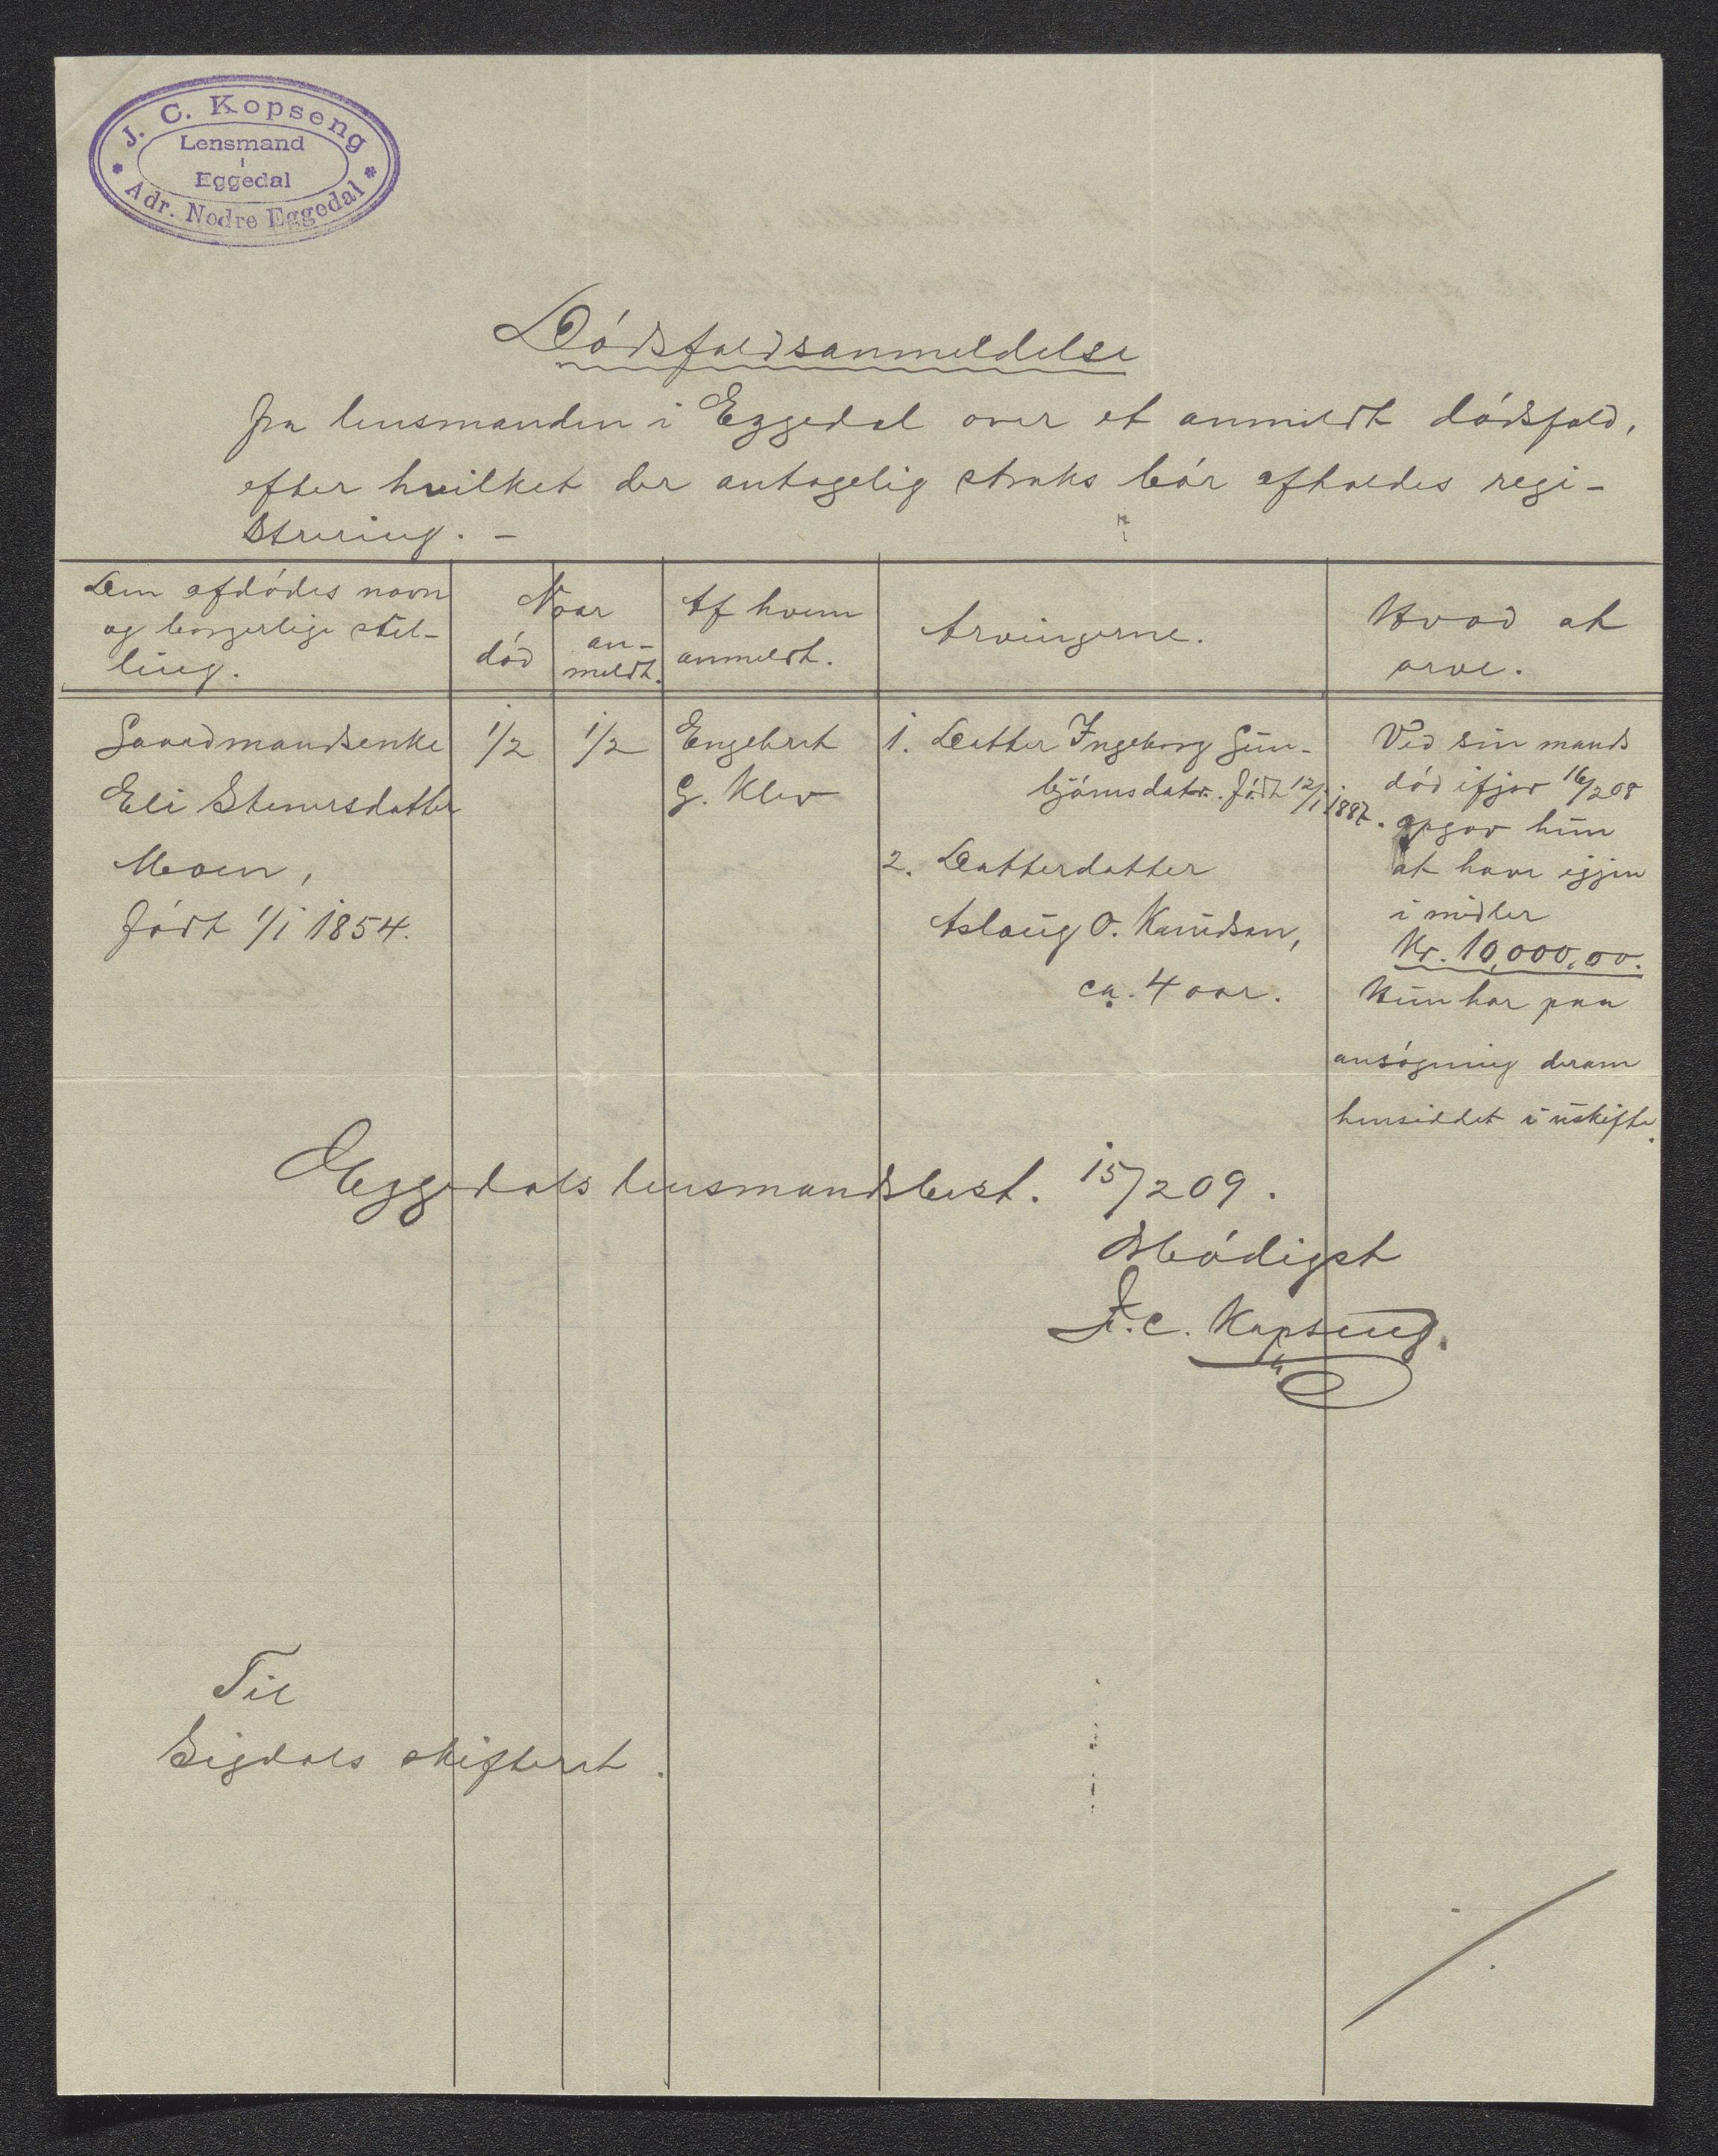 J. C. Kopseng
Lensmand
i
Eggedal
Adr. Nedre Eggedal
Dódsfaldsanmeldelse
fra lensmanden i Eggedal over et anmeldt dódsfald,
efter hvilket der antagelig straks bór afholdes regi-
strering. -
Den afdódes navn
og borgerlige stil-
ling.
Naar
dód
an-
meldt.
Af hvem
anmeldt.
Arvingerne.
Hvad at
arve.
Gaardmandsenke
Eli Stenersdatter
Moen,
fódt 1/1 1854.
1/2
1/2
Engebret
G. Klev
1. Datter Ingeborg Gun-
bjórnsdatr. fódt 12/1 1887.
2. Datterdatter
Aslaug O. Knudsen,
ca. 4 aar.
Ved sin mands
dód ifjor 16/2 08
opgav hun
at have igjen
i midler
Kr. 10,000,00.
Hun har paa
ansógning derom
hensiddet i uskifte.
Eggedals lensmandsbest. 15/2 09.
Ærbódigst
J. C. Kopseng.
Til
Sigdals skifteret.